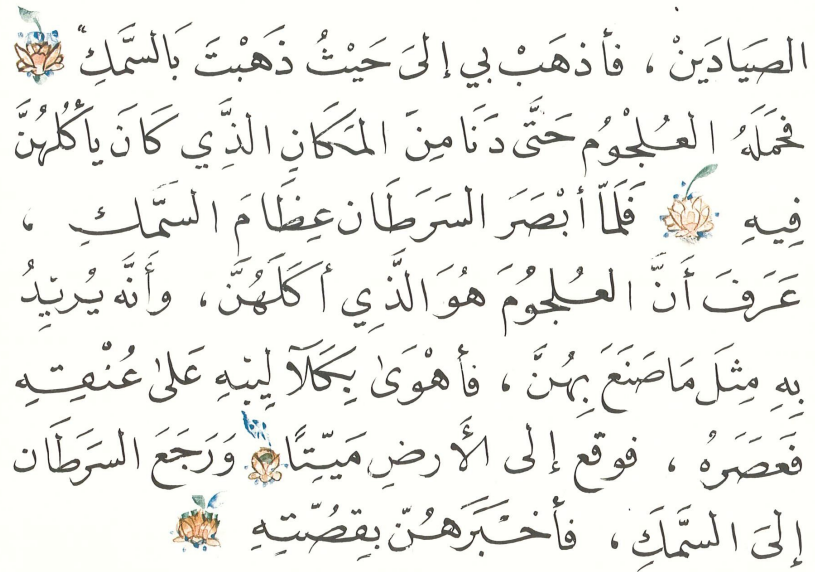 الصَيَادَينْ ، فأذهَبْ بي إلىَ حَيْثُ ذَهَبْتَ بَالسَّمَكِ
فحَمَلَهُ العُلجْوُم حَتَّى دَنَا مِنَ المَكَانِ الذَّيِ كَانَ يأكُلُهُنَّ
فِيهِ فَلَمّا أبْصَرَ السَرَطَان عِظَامَ السَّمكِ ،
عَرَفَ أنَّ العُلجوُمَ هُوَ الذَّيِ أكَلَهُنَّ ، وأَنَّه يُريّدُ
بِهِ مِثلَ مَا صَنَعَ بِهُنَّ ، فأهْوَىٰ بِكَلَآ ليبّهِ عَلىٰ عُنْقتِهِ
فَعَصَرهُ ، فوقع إلى الأَرضِ مَيّتِاً وَرَجَعَ السَرَطَان
إلىَ السَّمَكَِ ، فأخْبَرَهُنّ بقِصُتّهِ